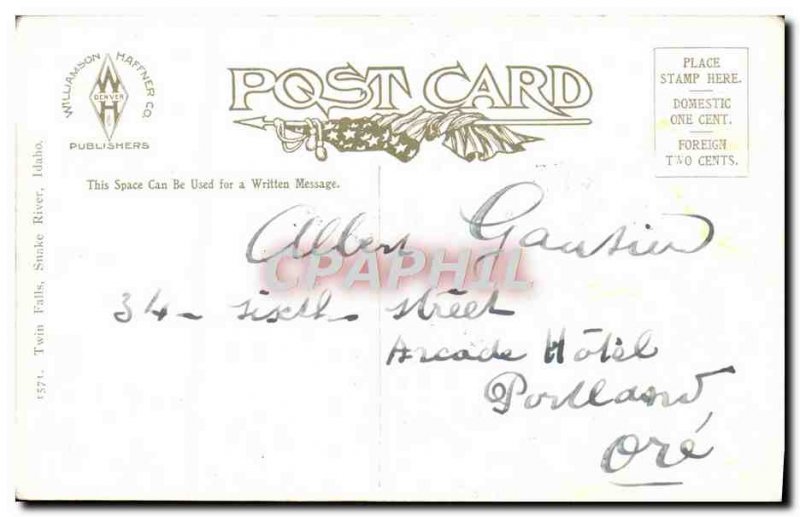 WILLIAMSON HAFFNER CO.
W
DENVER
H
PUBLISHERS
POST CARD
PLACE
STAMP HERE.
DOMESTIC
ONE CENT.
FOREIGN
TWO CENTS.
This Space Can Be Used for a Written Message.
1571. Twin Falls, Snake River, Idaho.
Albert Gautier
CPAPHIL
34 - sixth street
Arcade Hôtel
Portland
Oré